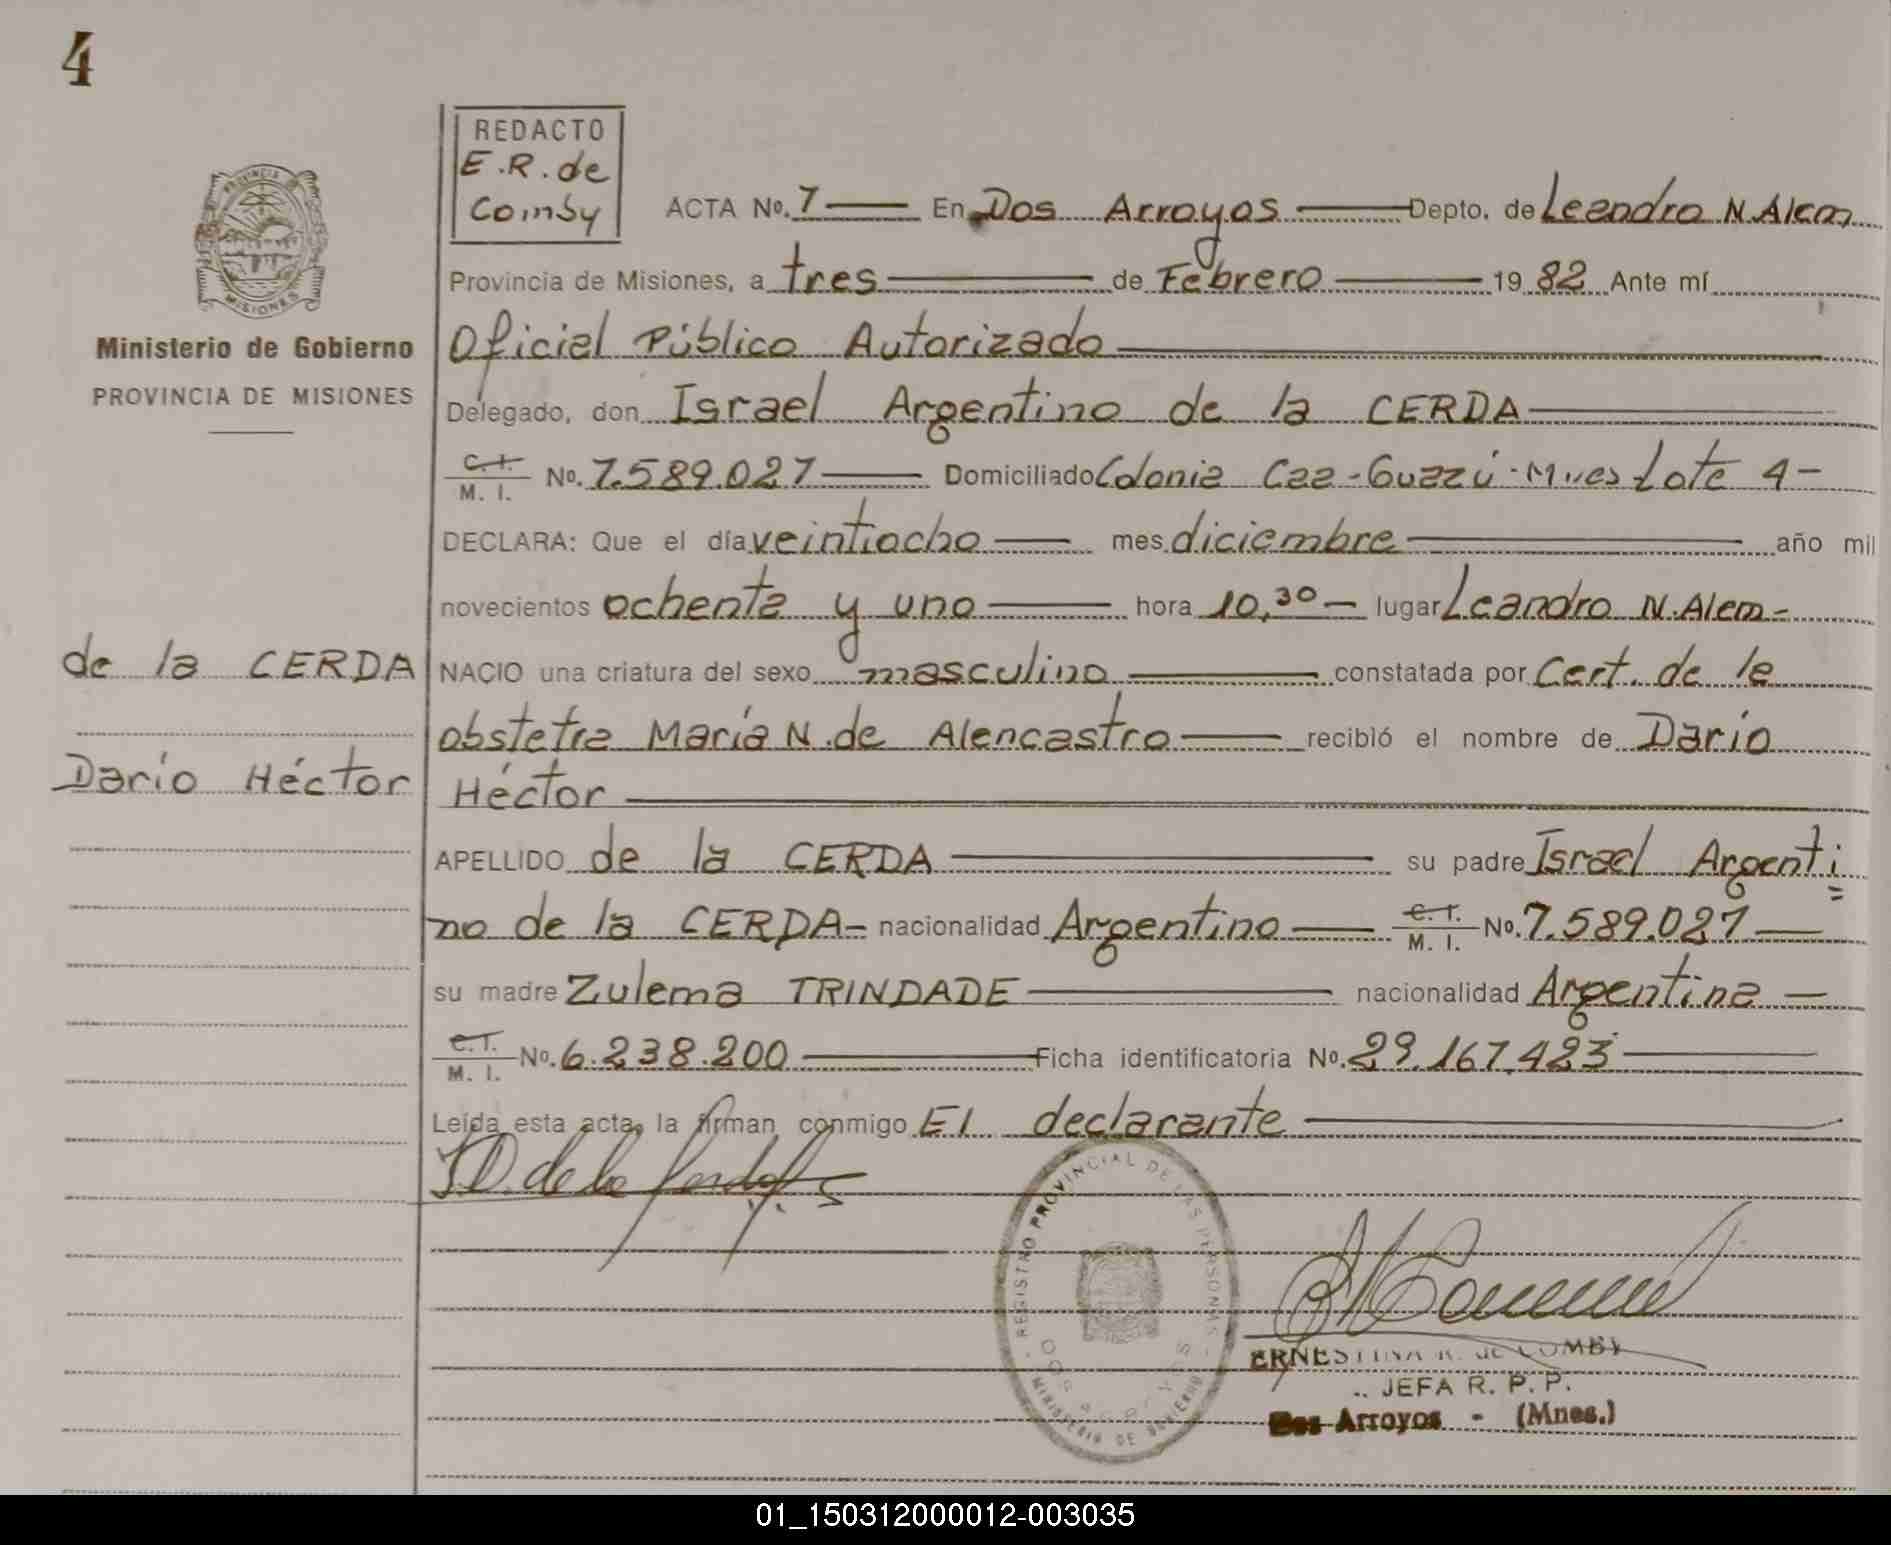 4
REDACTO
E.R. de
Comby
PROVINCIA DE
MISIONES
ACTA No. 7 En Dos Arroyos Depto. de Leandro N. Alem
Provincia de Misiones, a tres de Febrero 19 82 Ante mí
Ministerio de Gobierno
PROVINCIA DE MISIONES
Oficial Público Autorizado
Delegado, don Israel Argentino de la CERDA
C.I.
M. I. No. 7.589.027 Domiciliado Colonia Caa-Guazú-Mnes Lote 4-
DECLARA: Que el día veintiocho mes diciembre año mil
novecientos ochenta y uno hora 10,30 - lugar Leandro N. Alem-
de la CERDA
NACIO una criatura del sexo masculino constatada por Cert. de la
obstetra María N. de Alencastro recibió el nombre de Darío
Darío Héctor
Héctor
APELLIDO de la CERDA su padre Israel Argenti=
no de la CERDA- nacionalidad Argentino C.I.
M. I. No. 7.589.027
su madre Zulema TRINDADE nacionalidad Argentina -
C.I.
M. I. No. 6.238.200 Ficha identificatoria No. 29.167.423
Leída esta acta, la firman conmigo El declarante
REGISTRO PROVINCIAL DE LAS PERSONAS
DOS ARROYOS
MINISTERIO DE GOBIERNO
ERNESTINA R. de COMBY
JEFA R. P. P.
Dos Arroyos - (Mnes.)
01_150312000012-003035